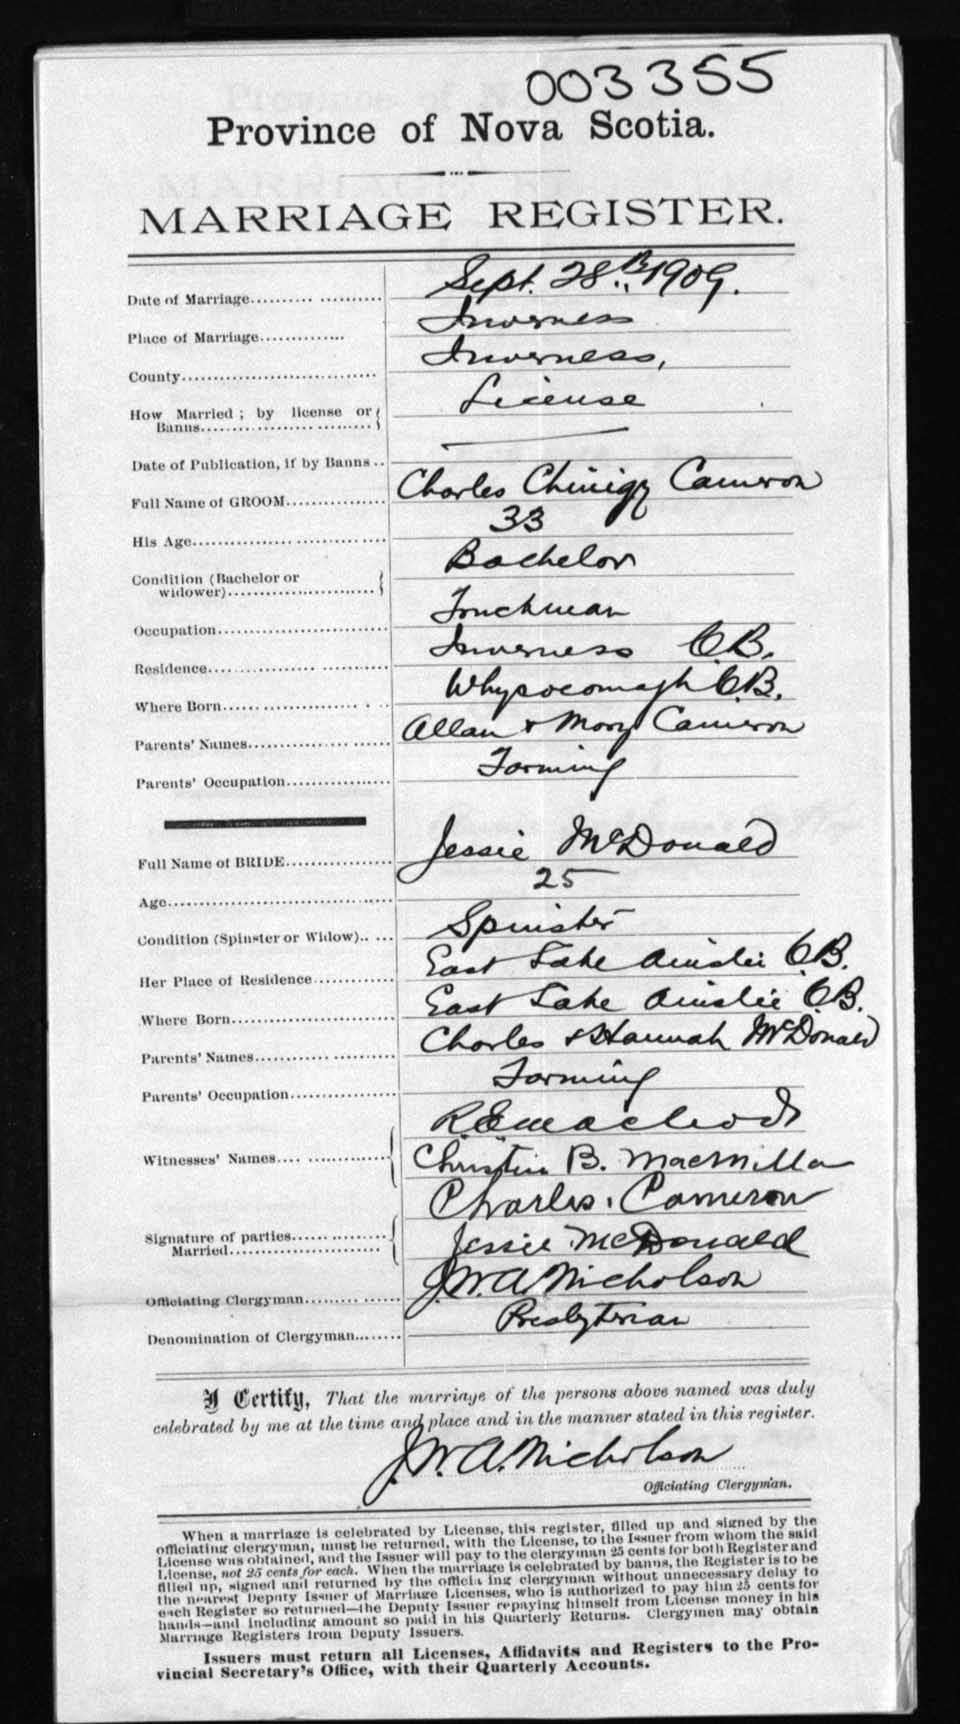 003355
Province of Nova Scotia.
MARRIAGE REGISTER.
Date of Marriage Sept. 28th, 1909.
Place of Marriage Inverness
County Inverness,
How Married; by license or Banns License
Date of Publication, if by Banns —
Full Name of GROOM Charles Chiniqy Cameron
His Age 33
Condition (Bachelor or widower) Bachelor
Occupation Truckman
Residence Inverness C.B.
Where Born Whycocomagh C.B.
Parents' Names Allan & Mary Cameron
Parents' Occupation Farming
Full Name of BRIDE Jessie McDonald
Age 25
Condition (Spinster or Widow) Spinster
Her Place of Residence East Lake Ainslie C.B.
Where Born East Lake Ainslie C.B.
Parents' Names Charles & Hannah McDonald
Parents' Occupation Farming
Witnesses' Names R.E. Macleod
Christin B. MacMilla
Signature of parties Married Charles. Cameron
Jessie McDonald
Officiating Clergyman J.W.A. Nicholson
Denomination of Clergyman Presbyterian
I Certify, That the marriage of the persons above named was duly
celebrated by me at the time and place and in the manner stated in this register.
J.W.A. Nicholson
Officiating Clergyman.
When a marriage is celebrated by License, this register, filled up and signed by the
officiating clergyman, must be returned, with the License, to the Issuer from whom the said
License was obtained, and the Issuer will pay to the clergyman 25 cents for both Register and
License, not 25 cents for each. When the marriage is celebrated by banns, the Register is to be
filled up, signed and returned by the officia ing clergyman without unnecessary delay to
the nearest Deputy Issuer of Marriage Licenses, who is authorized to pay him 25 cents for
each Register so returned—the Deputy Issuer repaying himself from License money in his
hands—and including amount so paid in his Quarterly Returns. Clergymen may obtain
Marriage Registers from Deputy Issuers.
Issuers must return all Licenses, Affidavits and Registers to the Pro-
vincial Secretary's Office, with their Quarterly Accounts.